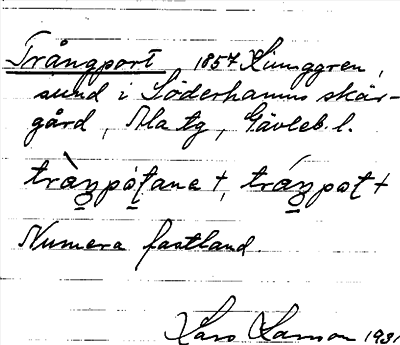 Trångport 1857 Ljunggren,
sund i Söderhamns skär-
gård, Ala tg, Gävleb. l.
tràŋpòʈana +, tráŋpoʈ +
Numera fastland.
Lars Larsson 1931